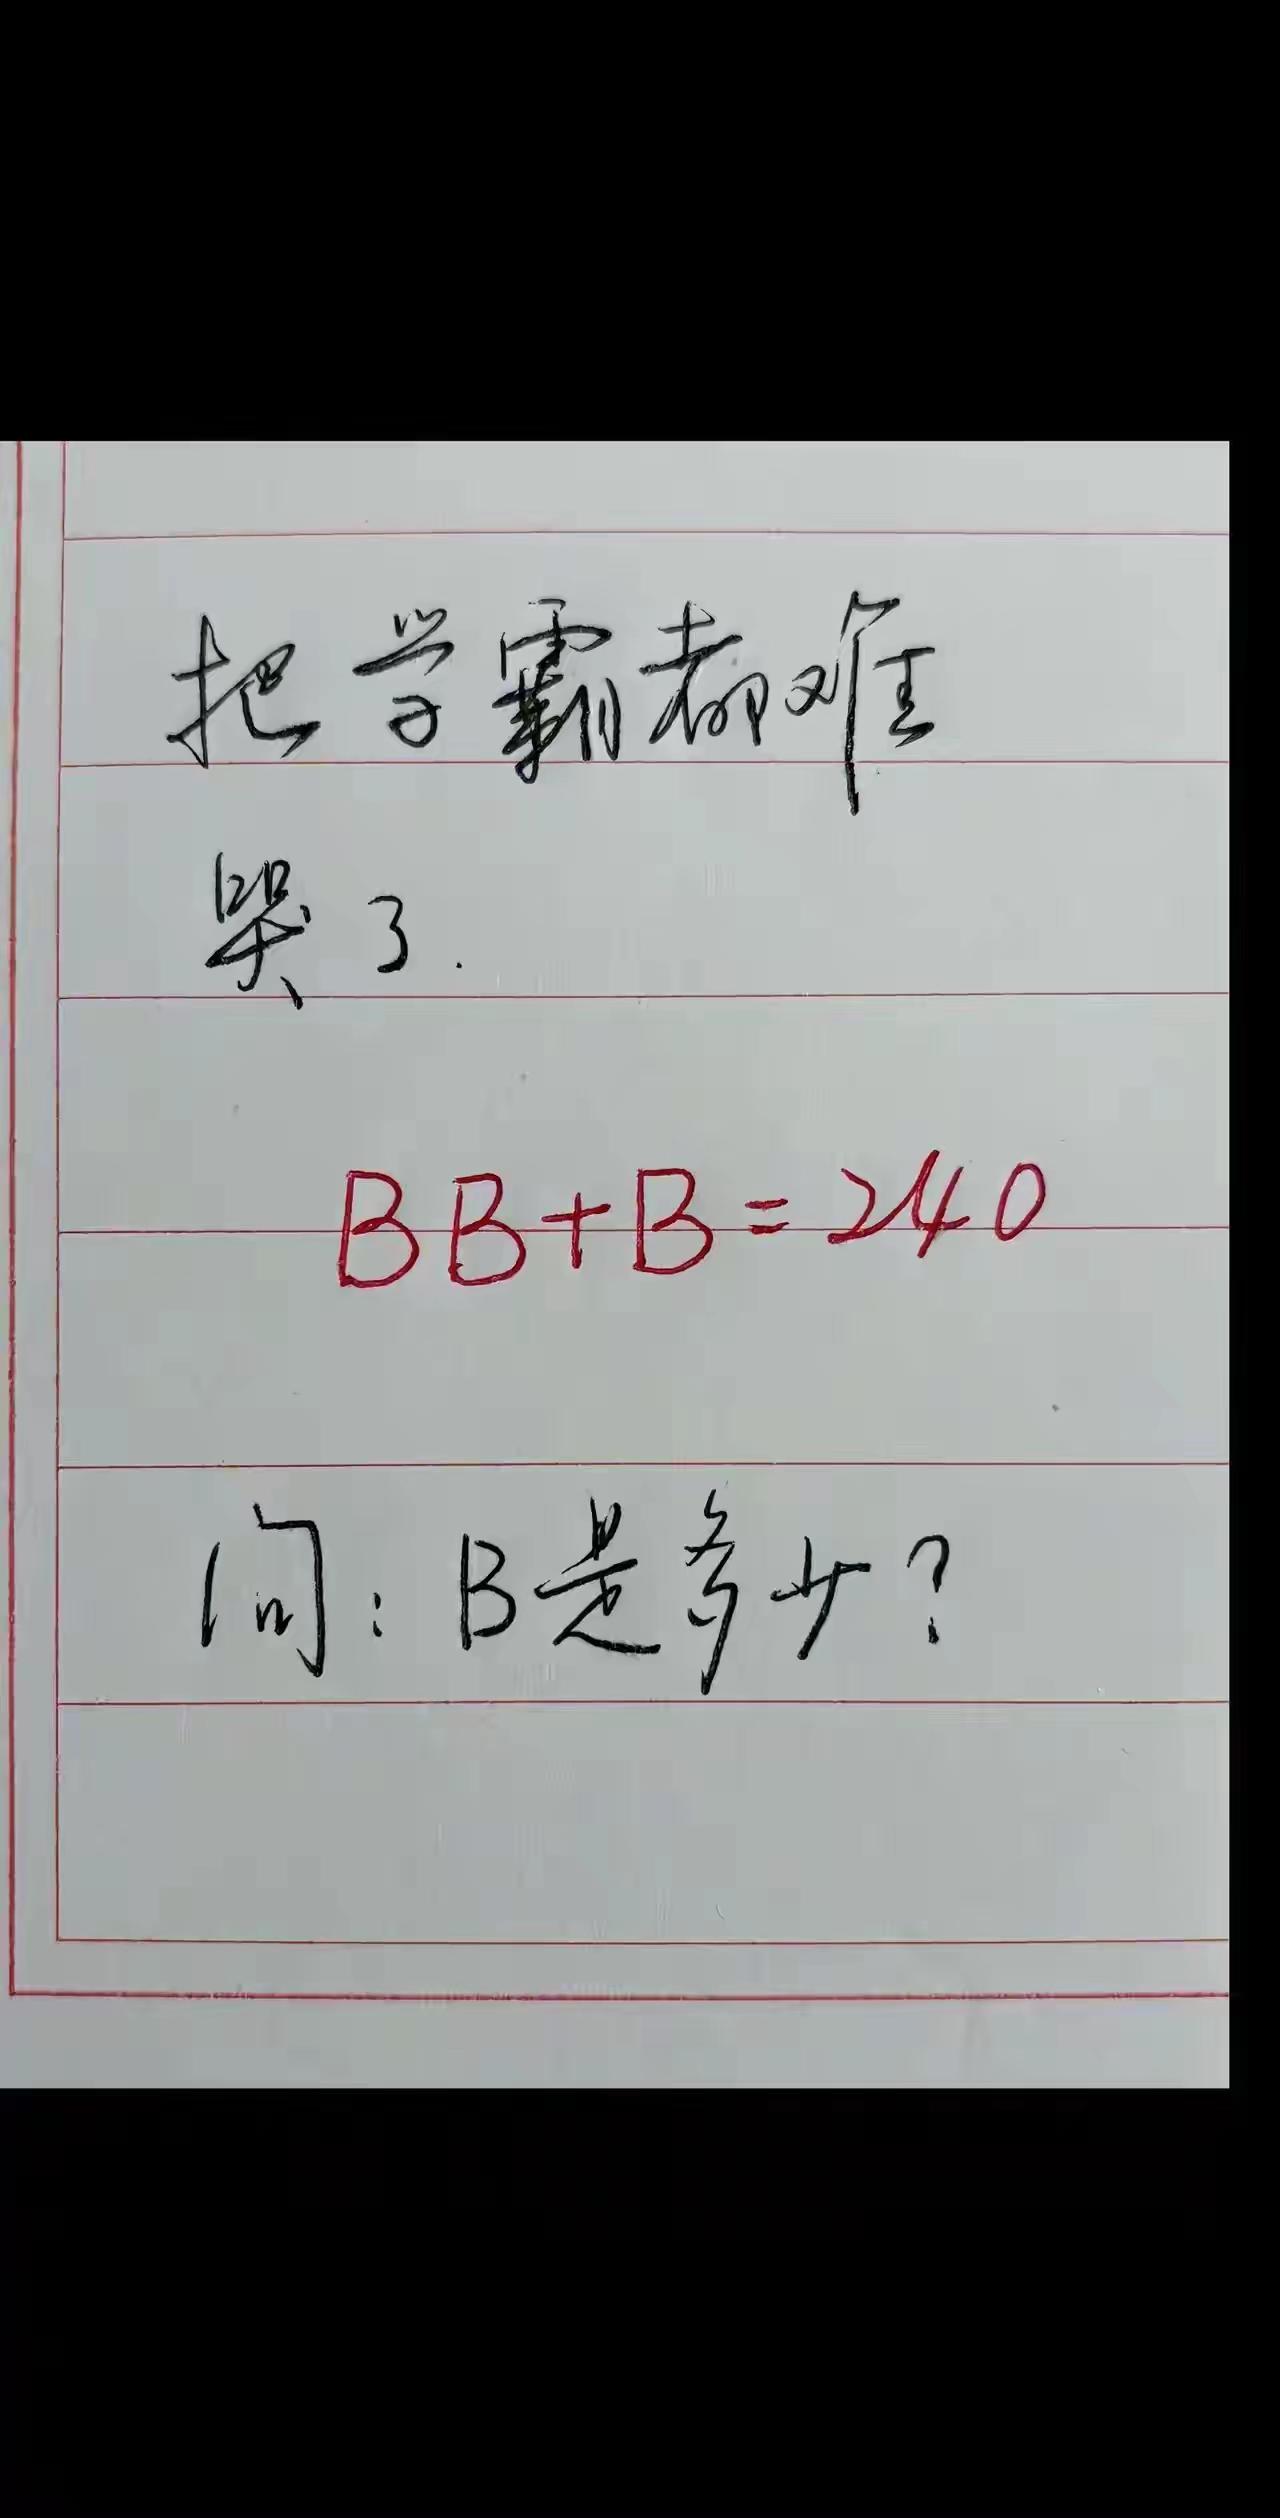 把学霸都难
哭了.
BB+B=240
问:B是多少?